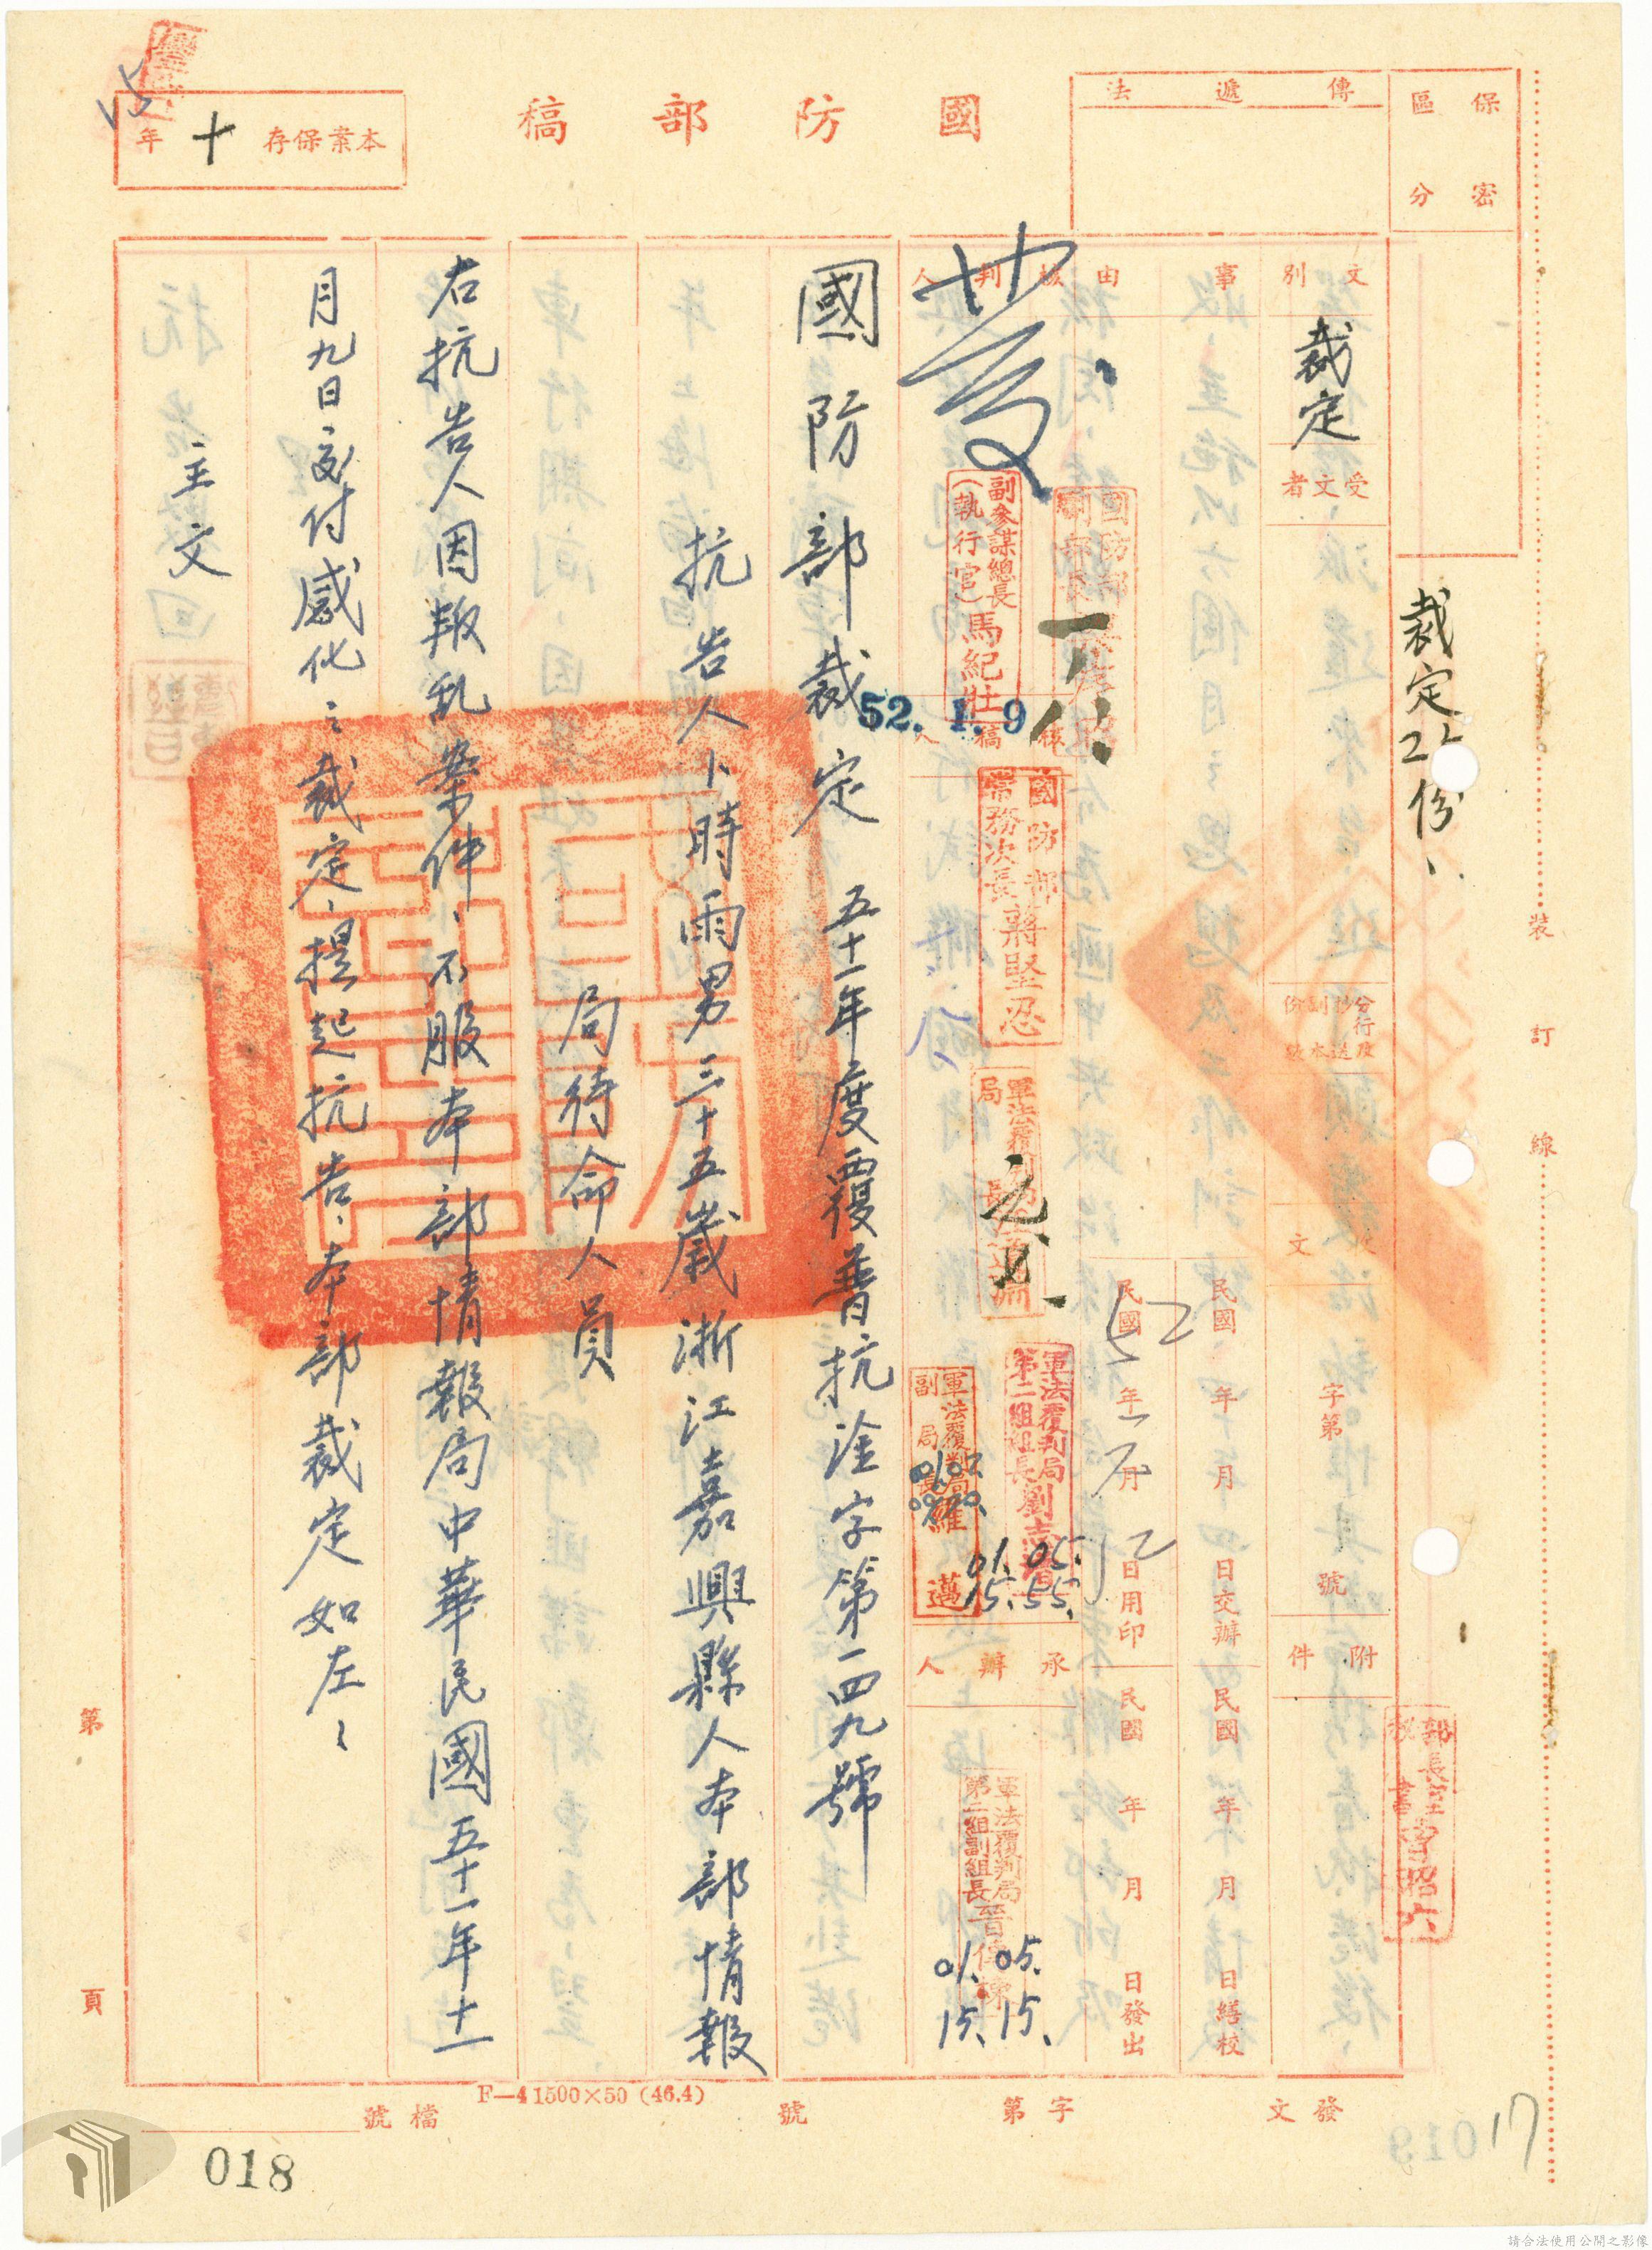 國防部稿
本案保存十年
傳遞法
保密
區分
裁定25份
文別
裁定
受文者
事由
附件
字第 號
民國 年 月 日交辦
民國 年 月 日繕校
民國52年1月12日用印
民國 年 月 日發出
核判人
核稿人
承辦人
副參謀總長
(執行官)馬紀壯
52.1.9
國防部
常務次長蔣堅忍
軍法覆判局
第二組組長劉志
01.05.
15.55.
軍法覆判局
副局長羅邁
軍法覆判局
第二組副組長
01.05.
15.15.
國防部裁定 五十一年度覆普抗淦字第一四九號
抗告人卜時雨男三十五歲浙江嘉興縣人本部情報
局待命人員
右抗告人因叛乱案件、不服本部情報局中華民國五十一年十二
月九日交付感化之裁定、提起抗告、本部裁定如左:
主文
裝
訂
線
第
頁
F—4 1500×50 (46.4)
發文 字第 號
檔號
018
17
請合法使用公開之影像